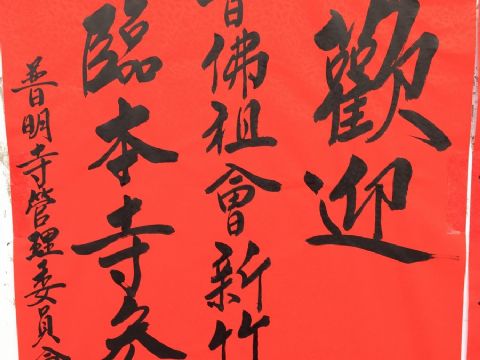 歡迎
佛祖會新竹
臨本寺
普明寺管理委員會